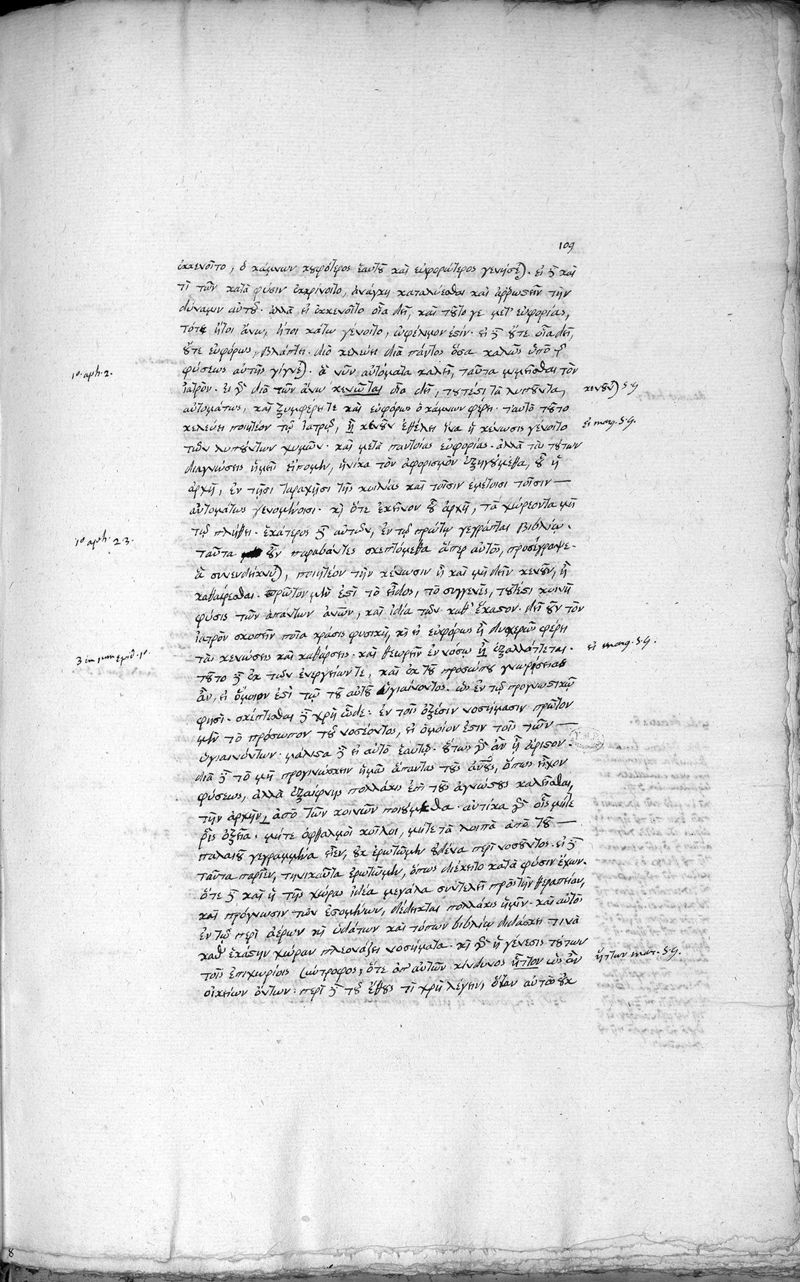 109
ἐκκενοῖτο, ὁ κάμνων κουφότερος ἑαυτοῦ καὶ εὐφορώτερος γενήσε). εἰ δὲ καὶ
τὶ τῶν κατὰ φύσιν ἐκκρίνοιτο, ἀνάγκη καταλύεσθαι καὶ ἀῤῥωστεῖν τὴν
δύναμιν αὐτοῦ. ἀλλὰ εἰ ἐκκενοῖτο οἷα δεῖ, καὶ τοῦτο γε μετ' εὐφορίας,
τότε ἤτοι ἄνω, ἤτοι κάτω γένοιτο, ὠφέλιμον ἐστιν. εἰ δὲ οὔτε οἷα δεῖ,
οὔτε εὐφόρως, βλάπτει. διὸ κελεύει διὰ παντὸς ὅσα καλῶς ὑπὸ τ
1º. aph. 2.
φύσεως αὐτῆς γίγνε). ἃ νῦν αὐτόματα καλεῖ, ταῦτα μιμεῖσθαι τὸν
ἰατρόν. εἰ γὰρ διὰ τῶν ἄνω κενῶται οἷα δεῖ, τουτέστι τὰ λυποῦντα,
κενοῦ) S.G.
αὐτομάτως, καὶ ξυμφέρει τε καὶ εὐφόρως ὁ κάμνων φέρει. ταυτὸ τοῦτο
κελεύει ποιητέον τῷ ἰατρῷ, ἢ κενοῦν ἐθέλει ἵνα ἡ κένωσις γένοιτο
εἰ marg. S.G.
τῶν λυπούντων χυμῶν. καὶ μετὰ παντοίας εὐφορίας. ἀλλὰ τὰς τούτων
διαγνώσεις ἡμεῖς εἴπομεν, ἡνίκα τὸν ἀφορισμὸν ἐξηγούμεθα, οὗ ἡ
ἀρχὴ, ἐν τῇσι ταραχῇσι τῆς κοιλίας καὶ τοῖσιν ἐμέτοισι τοῖσιν —
αὐτομάτως γενομένοισι. καὶ ὅτε ἐκεῖνον οὗ ἀρχὴ, τὰ χωρέοντα μὴ
1º aph. 23.
τῷ πλήθει. ἑκάτερος δὲ αὐτῶν, ἐν τῷ πρώτῳ γέγραπται βιβλίῳ.
ταῦτα οὖν παραβάντες σκεπτόμεθα ἅπερ αὐτὸς προσέγραψε.
ἃ συνενδείκνυ), ποιητέον τὴν κένωσιν ἢ καὶ μὴ δεῖν κενοῦν, ἢ
καθαίρεσθαι. πρῶτον μὲν ἐστὶ τὸ εἶδος, τὸ συγγενὲς, τουτέστι κοινὴ
φύσις τῶν ἁπάντων ἀνων, καὶ ἰδία τῶν καθ' ἕκαστον. δεῖ οὖν τὸν
ἰατρὸν σκοπεῖν ποία κρᾶσις φυσικὴ, καὶ εἰ εὐφόρως ἢ δυσχερῶς φέρει
τὰς κενώσεις καὶ καθάρσεις. καὶ θεωρεῖν ἐν νόσῳ ἢ ἐξαλλάττεται.
εἰ marg. S.G.
τοῦτο δὲ ἐκ τῶν ἐνεργειῶν τε, καὶ ἐκ τοῦ προσώπου γνωρίσειας
ἂν, εἰ ὅμοιον ἐστὶ τῷ τοῦ αὐτοῦ ὑγιαίνοντος. ὡς ἐν τῷ προγνωστικῷ
φησὶ. σκέπτεσθαι δὲ χρὴ ὧδε. ἐν τοῖς ὀξέσιν νοσήμασιν πρῶτον
μὲν τὸ πρόσωπον τοῦ νοσέοντος, εἰ ὁμοῖον ἐστιν τοῖς τῶν —
ὑγιαινόντων. μάλιστα δὲ εἰ αὐτὸ ἑαυτῷ. οὕτως γὰρ ἂν εἴη ἄριστον.
διὰ δὲ τὸ μὴ προγινώσκειν ἡμᾶς ἅπαντας τοὺς ἀνους, ὅπως εἶχον
φύσεως, ἀλλὰ ἐξαίφνης πολλάκις ἐπὶ τοὺς ἀγνώστους καλεῖσθαι,
τὴν ἀρχὴν ἀπὸ τῶν κοινῶν ποιούμεθα. αὐτίκα γὰρ οἷς μήτε
ῥὶς ὀξεῖα. μήτε ὀφθαλμοὶ κοῖλοι, μήτε τὰ λοιπὰ ἀπὸ τοῦ —
παλαιοῦ γεγραμμένα εἶεν, οὐκ ἐρωτῶμεν οὐδένα περὶ νοσοῦντος. εἰ δὲ
ταῦτα παρεῖεν, τηνικαῦτα ἐρωτῶμεν, ὅπως διέκειτο κατὰ φύσιν ἔχων.
ὅτε δὲ καὶ ἡ τῆς χώρας ἰδέα μεγάλα συντελεῖ πρὸς τὴν θεραπείαν,
καὶ πρόγνωσιν τῶν ἐσομένων, δέδεικται πολλάκις ἡμῖν. καὶ αὐτὸς
ἐν τῷ περὶ ἀέρων καὶ ὑδάτων καὶ τόπων βιβλίῳ διδάσκει τινὰ
καθ' ἑκάστην χώραν πλεονάζει νοσήματα. καὶ γὰρ ἡ γένεσις τούτων
τοῖς ἐπιχωρίοις σύντροφος, ὅτε ἀπ' αὐτῶν κίνδυνος ἧττον ὡς ἂν
ἥττων mar. S.G.
οἰκείων ὄντων. περὶ δὲ τοῦ ἔθους τὶ χρὴ λέγειν; ὅταν αὐτὸς οὐκ